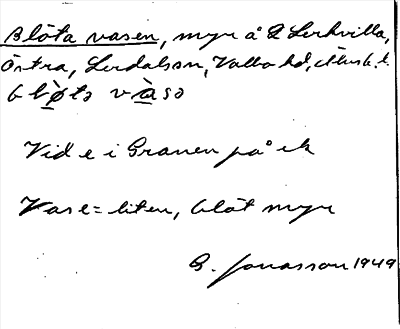 Blöta vasen, myr å Lerkvilla,
Östra, Lerdalson, Valbo hd, Älvsb. l.
blø̀tə và̱sə
Vid e i Granen på ek
Vase = liten, blöt myr
G. Jonasson 1949